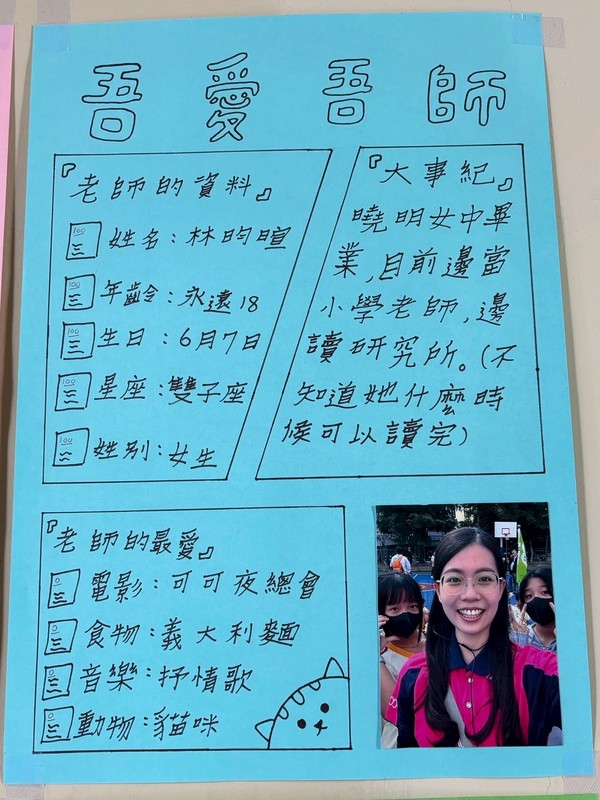 吾愛吾師
『老師的資料』
姓名：林昀暄
年齡：永遠18
生日：6月7日
星座：雙子座
姓別：女生
『大事紀』
曉明女中畢
業，目前邊當
小學老師，邊
讀研究所。(不
知道她什麼時
候可以讀完)
『老師的最愛』
電影：可可夜總會
食物：義大利麵
音樂：抒情歌
動物：貓咪